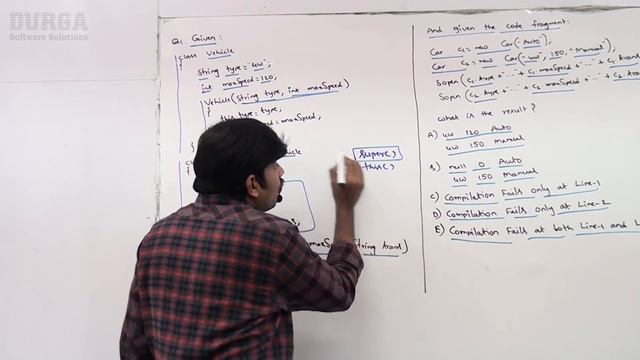 DURGA
Software Solutions
Q1. Given:
class Vehicle
{
String type="4W";
int maxSpeed=120;
Vehicle(String type, int maxSpeed)
{
this.type=type;
=maxSpeed;
}
Vehicle
{
super();
this();
maxSpeed, String trans)
And given the code fragment:
Car c1=new Car("Auto");
Car c2=new Car("4W", 150, "Manual");
Sopln(c1.type+" "+c1.maxSpeed+" "+c1.trans
Sopln(c2.type+" "+c2.maxSpeed+" "+c2.trans
What is the result?
A) 4W 120 Auto
4W 150 Manual
B) null 0 Auto
4W 150 Manual
C) Compilation Fails only at Line-1
D) Compilation Fails only at Line-2
E) Compilation Fails at both Line-1 and